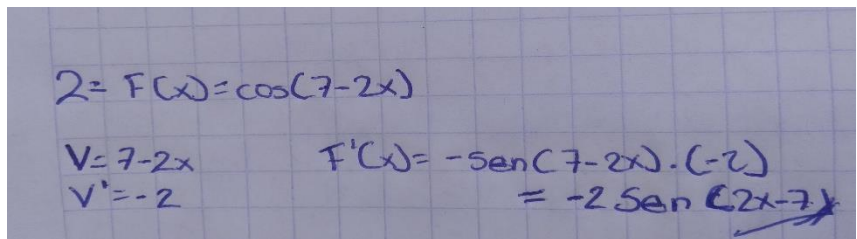 2= F(x)=cos(7-2x)
V=7-2x F'(x)= -sen(7-2x).(-2)
V'=-2 = -2 Sen (2x-7)